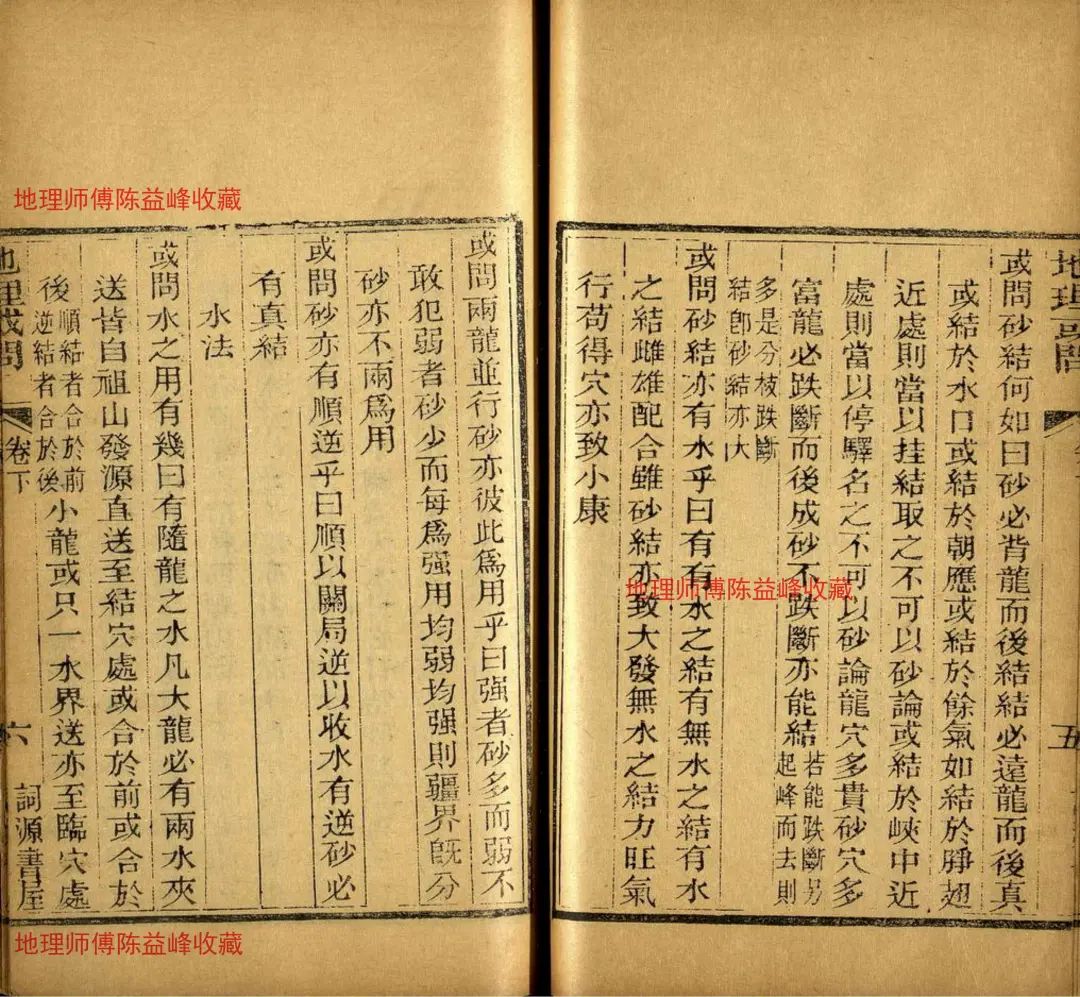 地理或問
五
或問砂結何如曰砂必背龍而後結結必遠龍而後真
或結於水口或結於朝應或結於餘氣如結於䏶翅
近處則當以挂結取之不可以砂論或結於峽中近
處則當以停驛名之不可以砂論龍穴多貴砂穴多
富龍必跌斷而後成砂不跌斷亦能結若能跌斷另
起峰而去則
多是分枝跌斷
結卽砂結亦大
或問砂結亦有水乎曰有有水之結有無水之結有水
之結雌雄配合雖砂結亦致大發無水之結力旺氣
行苟得穴亦致小康
或問兩龍並行砂亦彼此爲用乎曰强者砂多而弱不
敢犯弱者砂少而每爲强用均弱均强則疆界旣分
砂亦不兩爲用
或問砂亦有順逆乎曰順以關局逆以收水有逆砂必
有真結
水法
或問水之用有幾曰有隨龍之水凡大龍必有兩水夾
送皆自祖山發源直送至結穴處或合於前或合於
後順結者合於前
逆結者合於後小龍或只一水界送亦至臨穴處
地理或問
卷下
六
詞源書屋
地理师傅陈益峰收藏
地理师傅陈益峰收藏
地理师傅陈益峰收藏